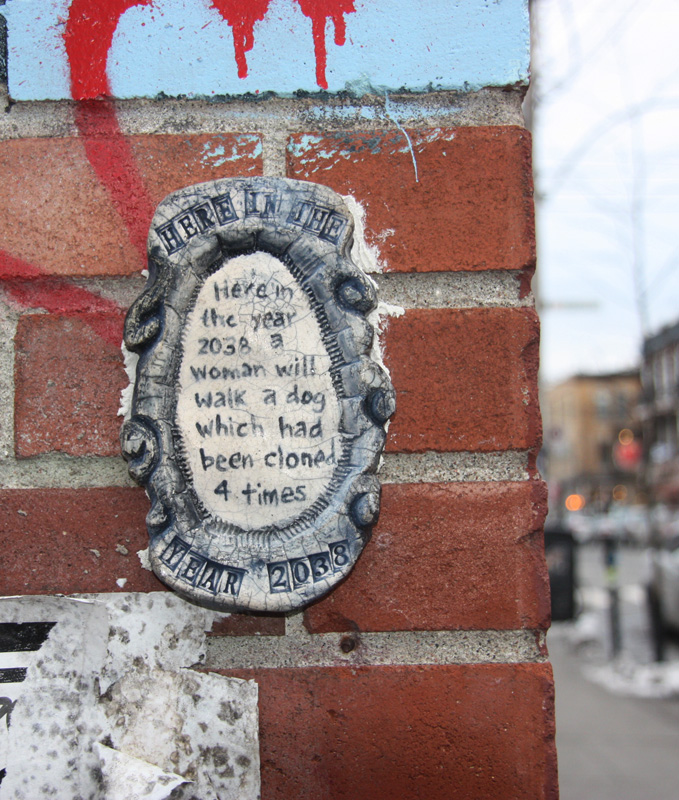 HERE IN THE
Here in
the year
2038 a
woman will
walk a dog
which had
been cloned
4 times
YEAR 2038